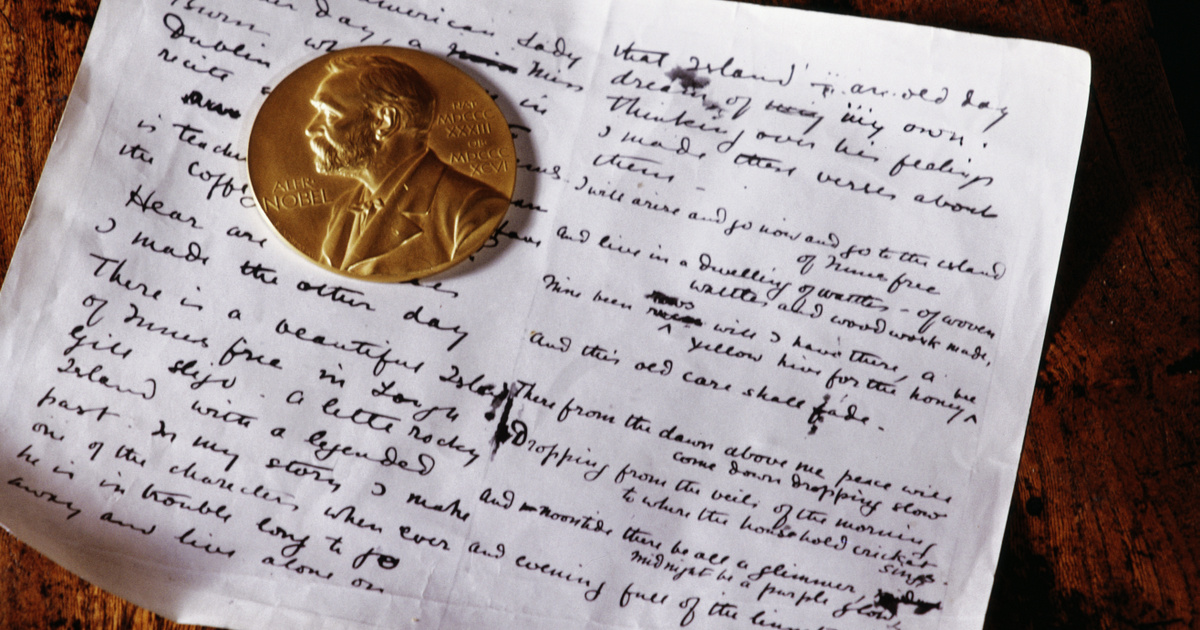 day, american Lady
Dublin wh a Miss
recite a in
is teach
the coffe
Hear are
I made the other day
There is a beautiful Isla
of Innis free in Lough
Gill Sligo. A little rocky
Island with a legended
past. In my story I make
one of the characters when ever
he is in trouble long to go
away and live alone on
ALFR.
NOBEL
NAT.
MDCCC
XXXIII
OB.
MDCCC
XCVI
that Island – an old day
dream of my own.
Thinking over his feelings
I made these verses about
them –
I will arise and go now and go to the island
of Innis free
and live in a dwelling of wattles – of woven
wattles and wood work made,
Nine bean rows will I have there, a
yellow hive for the honey
And this old care shall fade.
There from the dawn above me peace will
come down dropping slow
Dropping from the veils of the morning
to where the household cricket
sings.
And noontide there be all a glimmer,
midnight be a purple glow,
and evening full of the linnet